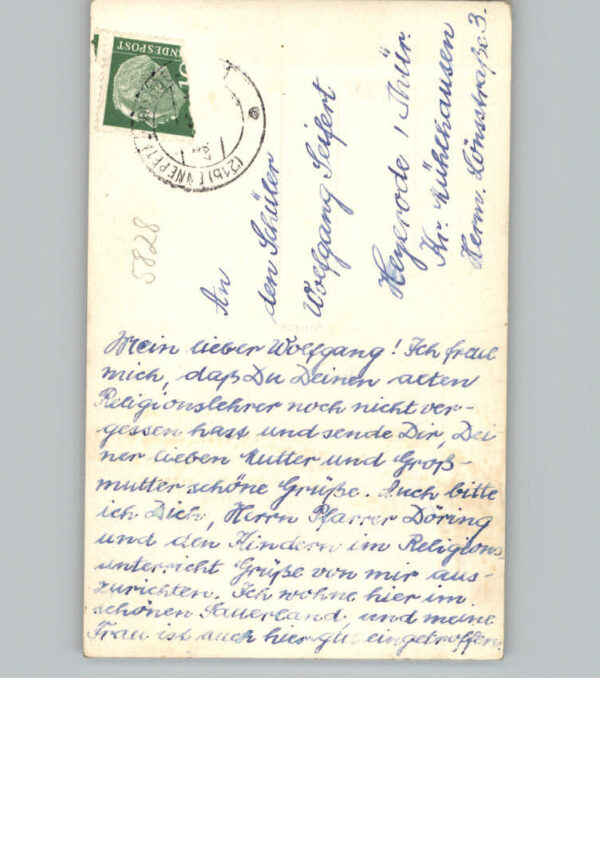 NDESPOST
10
(21b) ENNEPET
5828
An
den Schüler
Wolfgang Seifert
Heyerode / Thür.
Kr. Mühlhausen
Herm. Lönsstraße 3.
Mein lieber Wolfgang! Ich freue
mich, daß Du Deinen alten
Religionslehrer noch nicht ver-
gessen hast und sende Dir, Dei
ner lieben Mutter und Groß-
mutter schöne Grüße. Auch bitte
ich Dich, Herrn Pfarrer Döring
und den Kindern im Religions
unterricht Grüße von mir aus-
zurichten. Ich wohne hier im
schönen Sauerland, und meine
Frau ist auch hier gut eingetroffen.